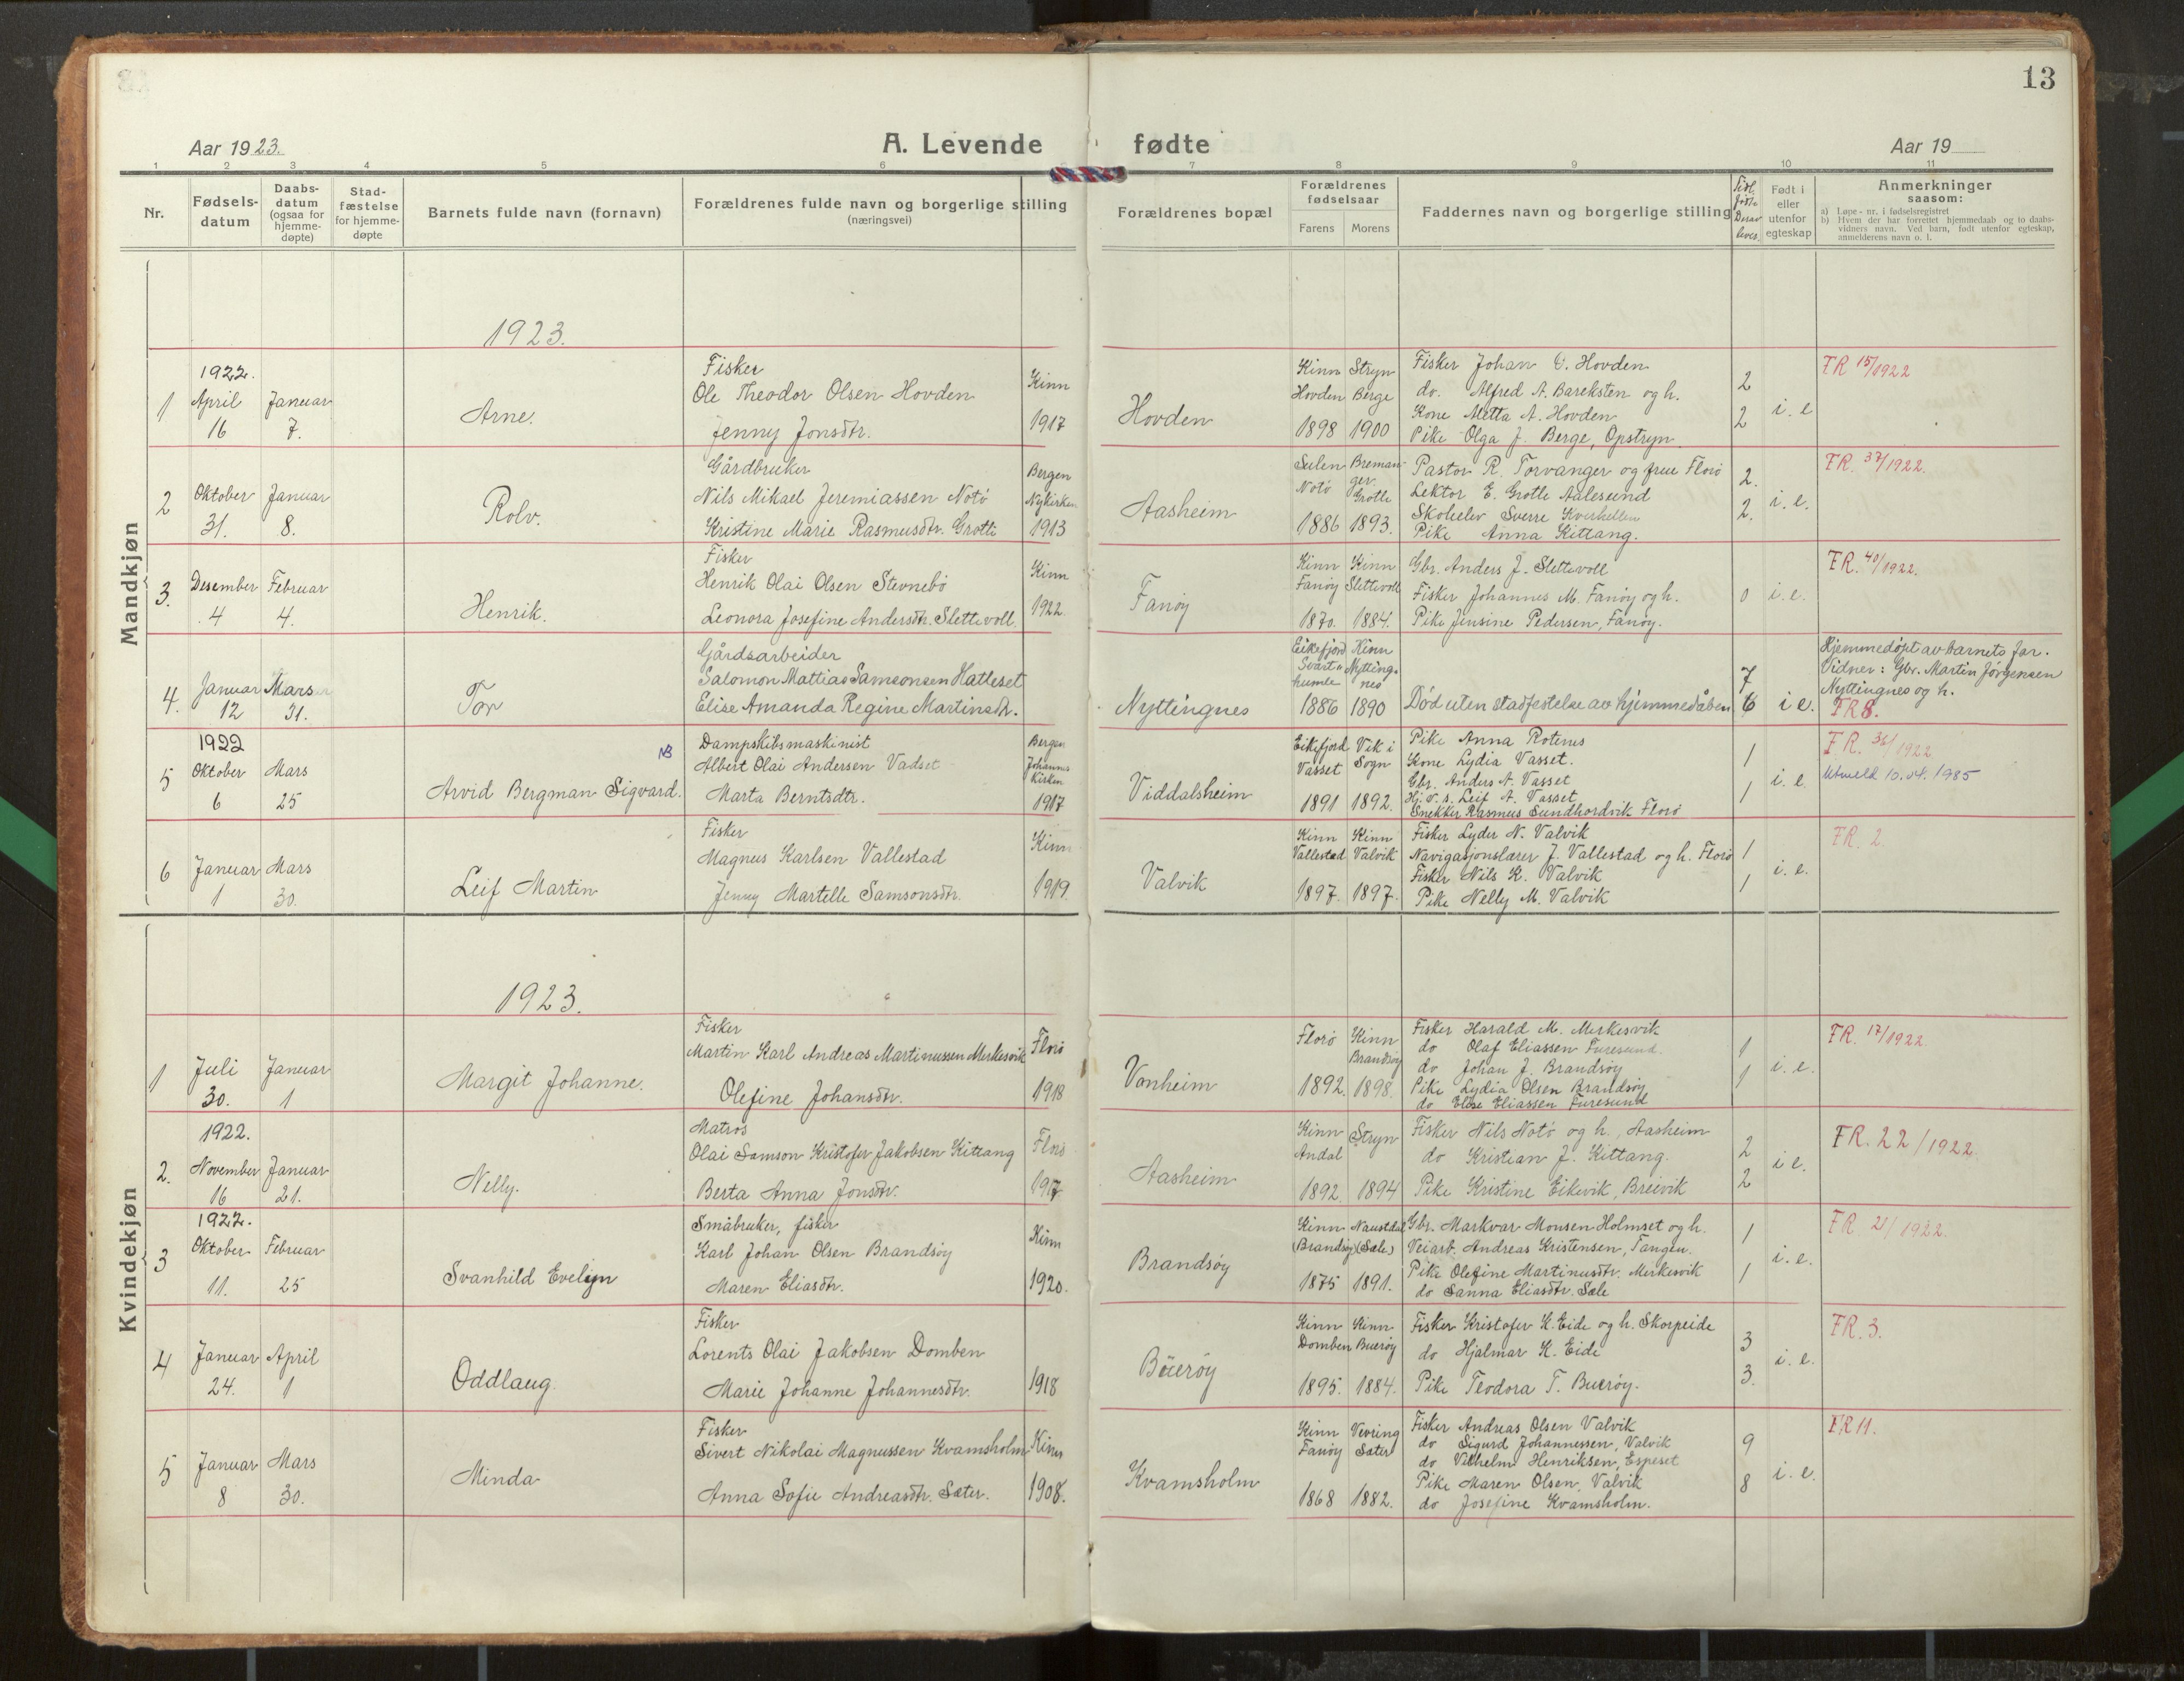 13
Aar 1923.
A. Levende fødte
Aar 19
1 2 3 4 5 6 7 8 9 10 11
Nr.
Fødsels-
datum
Daabs-
datum
(ogsaa for
hjemme-
døpte)
Stad-
fæstelse
for hjemme-
døpte
Barnets fulde navn (fornavn)
Forældrenes fulde navn og borgerlige stilling
(næringsvei)
Forældrenes bopæl
Forældrenes
fødselsaar
Farens Morens
Faddernes navn og borgerlige stilling
Tidl.
fødte
Derav
lever
Født i
eller
utenfor
egteskap
Anmerkninger
saasom:
a) Løpe-nr. i fødselsregistret
b) Hvem der har forrettet hjemmedaab og to daabs-
vidners navn. Ved barn, født utenfor egteskap,
anmelderens navn o. l.
Mandkjøn
1923.
1
1922.
April
16
Januar
7.
Arne.
Fisker
Ole Theodor Olsen Hovden
Jenny Jonsdtr.
Kinn
1917
Hovden
Kinn
Hovden
1898
Stryn
Berge
1900
Fisker Johan O. Hovden
do. Alfred A. Bareksten og h.
Kone Metta A. Hovden
Pike Olga J. Berge, Opstryn.
2
2
i. e
FR 15/1922
2
Oktober
31.
Januar
8.
Rolv.
Gårdbruker
Nils Mikael Jeremiassen Notö
Kristine Marie Rasmusdtr. Grotle
Bergen
Nykirken
1913
Aasheim
Sulen
Notö
1886
Bremanger.
Grotle
1893.
Pastor R. Torvanger og frue Florö
Lektor E. Grotle Aalesund
Skoleelev Sverre Kverhellen
Pike Anna Kittang.
2.
2.
i. e.
FR. 37/1922.
3.
Desember
4
Februar
4.
Henrik.
Fisker
Henrik Olai Olsen Stevnebö
Leonora Josefine Andersdtr. Slettevoll.
Kinn
1922.
Fanöy
Kinn
Fanöy
1870.
Kinn
Slettevoll
1884.
Gbr. Anders J. Slettevoll
Fisker Johannes M. Fanöy og h.
Pike Jensine Pedersen, Fanöy.
0
i. e.
FR. 40/1922.
4.
Januar
12
Mars
31.
Tor
Gårdsarbeider
Salomon Mattias Samsonsen Hatleset
Elise Amanda Regine Martinsdtr.
Nyttingnes
Eikefjord
Svart-
humle
1886
Kinn
Nytting-
nes
1890
Död uten stadfestelse av hjemmedåben
7
6
i e.
Hjemmedöpt av barnets far.
Vidner: Gbr. Martin Jörgensen
Nyttingnes og h.
FR 8.
5
1922
Oktober
6
Mars
25
NB
Arvid Bergman Sigvard.
Dampskibsmaskinist
Albert Olai Andersen Vadset
Marta Berntsdtr.
Bergen
Johannes
Kirken
1917
Viddalsheim
Eikefjord
Vasset
1891
Vek i
Sogn
1892.
Pike Anna Rotenes
Kone Lydia Vasset.
Gbr. Anders A. Vasset
Hj. v. s. Leif A. Vasset
Snekker Rasmus Sundhordvik Florö
1
1
i. e
FR. 36/1922
Utmeld 10.04.1985
6
Januar
1
Mars
30.
Leif Martin
Fisker
Magnus Karlsen Vallestad
Jenny Martelle Samsonsdtr.
Kinn
1919.
Valvik
Kinn
Vallestad
1897.
Kinn
Valvik
1897.
Fisker Lyder N. Valvik
Navigasjonslærer J. Vallestad og h. Florö
Fisker Nils K. Valvik
Pike Nelly M. Valvik
1
1
i. e.
FR. 2.
Kvindekjøn
1923.
1
Juli
30.
Januar
1
Margit Johanne.
Fisker
Martin Karl Andreas Martinussen Merkesvik
Olefine Johansdtr.
Florö
1918
Vonheim
Florö
1892.
Kinn
Brandsöy
1898.
Fisker Harald M. Merkesvik
do Olaf Eliassen Furesund.
do Johan J. Brandsöy
Pike Lydia Olsen Brandsöy
do Elise Eliassen Furesund
1
1
i. e.
FR. 17/1922.
2.
1922.
November
16
Januar
21.
Nelly.
Matros
Olai Samson Kristofer Jakobsen Kittang
Berta Anna Jonsdtr.
Florö
1917
Aasheim
Kinn
Andal
1892.
Stryn
1894
Fisker Nils Notö og h., Aasheim
do Kristian J. Kittang.
Pike Kristine Eikevik, Breivik
2
2
i e.
FR. 22/1922.
3
1922.
Oktober
11.
Februar
25
Svanhild Evelyn
Småbruker, fisker
Karl Johan Olsen Brandsöy
Maren Eliasdtr.
Kinn
1920.
Brandsöy
Kinn
(Brandsöy)
1875
Naustdal
(Sæle)
1891.
Gbr. Markvar Monsen Holmset og h.
Veiarb. Andreas Kristensen, Tangen.
Pike Olefine Martinusdtr. Merkesvik
do Sanna Eliasdtr. Sæle
1
1
i. e.
FR 21/1922.
4
Januar
24.
April
1
Oddlaug.
Fisker
Lorents Olai Jakobsen Domben
Marie Johanne Johannesdtr.
1918
Bueröy
Kinn
Domben
1895.
Kinn
Bueröy
1884.
Fisker Kristofer K. Eide og h. Skorpeide
do Hjalmar K. Eide
Pike Teodora T. Bueröy.
3
3.
i. e.
FR. 3.
5
Januar
8
Mars
30.
Minda
Fisker
Sivert Nikolai Magnussen Kvamsholm
Anna Sofie Andreasdtr. Sæter.
Kinn
1908.
Kvamsholm
Kinn
Fanöy
1868
Vevring
Sæter
1882.
Fisker Andreas Olsen Valvik
do Sigurd Johannessen, Valvik
do Vilhelm Henriksen, Espeset
Pike Maren Olsen, Valvik
do Josefine Kvamsholm.
9
8
i. e.
FR 11.